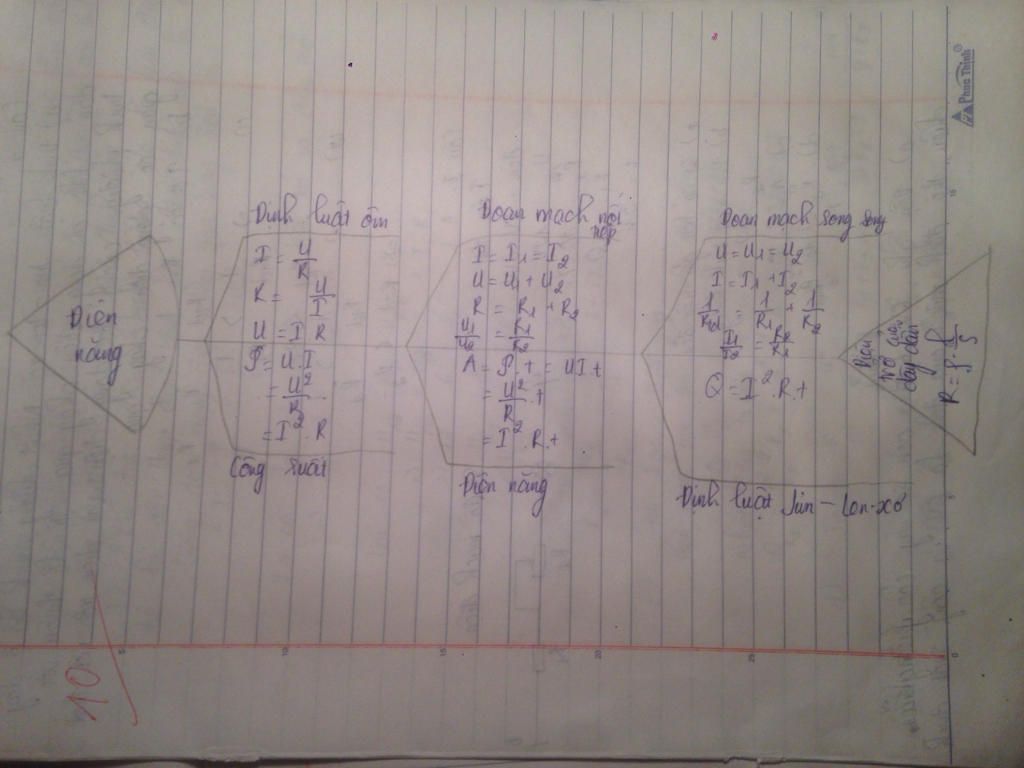 Điện
năng
Định luật ôm
I = U/R
R = U/I
U = I R
P = U.I
= U²/R
= I². R
Công suất
Đoạn mạch nối
tiếp
I = I₁ = I₂
U = U₁ + U₂
R = R₁ + R₂
U₁/U₂ = R₁/R₂
A = P.t = UI.t
= U²/R .t
= I². R.t
Điện năng
Đoạn mạch song song
U = U₁ = U₂
I = I₁ + I₂
1/Rtđ = 1/R₁ + 1/R₂
I₁/I₂ = R₂/R₁
Q = I². R.t
Định luật Jun - Len-xơ
Điện
trở của
dây dẫn
R = ρ. l/S
10
5
10
15
20
25
0
5
10
PHÚC THỊNH